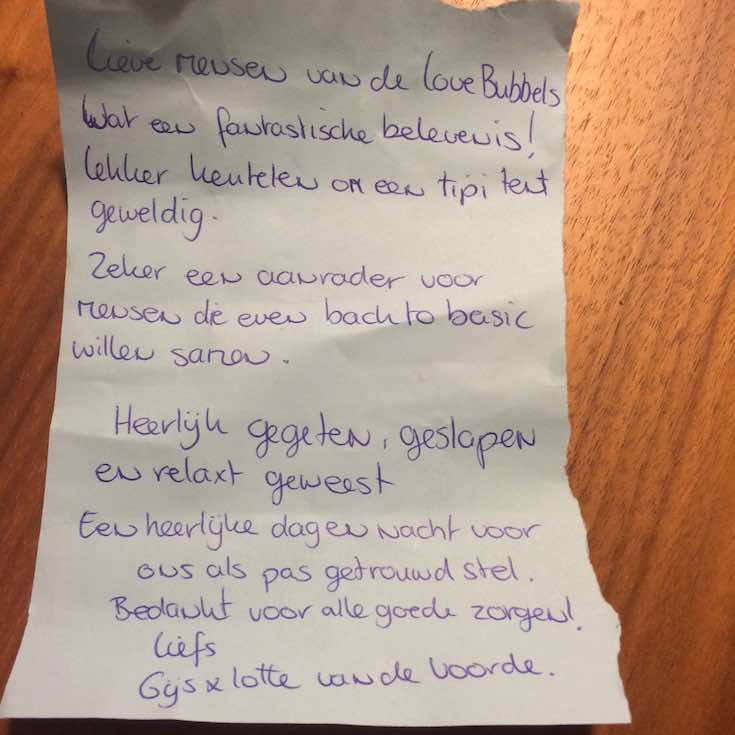 Lieve mensen van de Love Bubbels
Wat een fantastische belevenis!
Lekker keutelen om een tipi tent
geweldig.
Zeker een aanrader voor
mensen die even back to basic
willen samen.
Heerlijk gegeten, geslapen
en relaxt geweest
Een heerlijke dag en nacht voor
ons als pas getrouwd stel.
Bedankt voor alle goede zorgen!
Liefs
Gijs x Lotte van de Voorde.